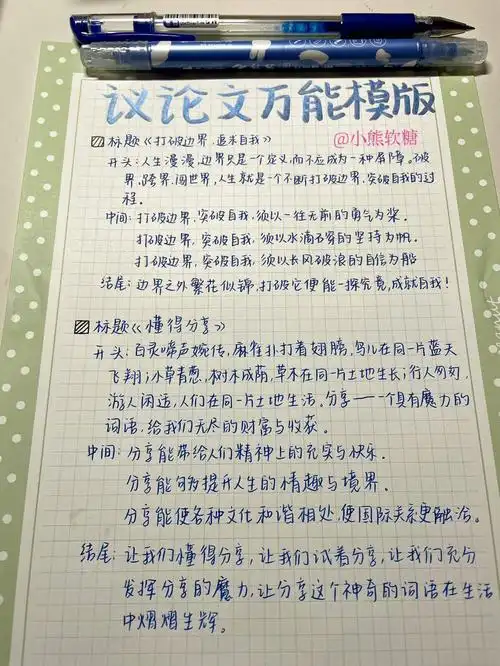 议论文万能模版
@小熊软糖
标题《打破边界,追求自我》
开头:人生漫漫,边界只是一个定义,而不应成为一种屏障。破
界,跨界,闯世界,人生就是一个不断打破边界,突破自我的过
程。
中间:打破边界,突破自我,须以一往无前的勇气为桨.
打破边界,突破自我,须以水滴石穿的坚持为帆.
打破边界,突破自我,须以长风破浪的自信为船
结尾:边界之外繁花似锦,打破它便能一探究竟,成就自我!
标题《懂得分享》
开头:百灵啼声婉传,麻雀扑打着翅膀,鸟儿在同一片蓝天
飞翔;小草有意,树木成荫,草木在同一片土地生长;行人匆匆,
游人闲适,人们在同一片土地生活。分享——一个具有魔力的
词语,给我们无尽的财富与收获。
中间:分享能带给人们精神上的充实与快乐.
分享能够为提升人生的情趣与境界.
分享能使各种文化和谐相处,使国际关系更融洽。
结尾:让我们懂得分享,让我们试着分享,让我们充分
发挥分享的魔力,让分享这个神奇的词语在生活
中熠熠生辉。